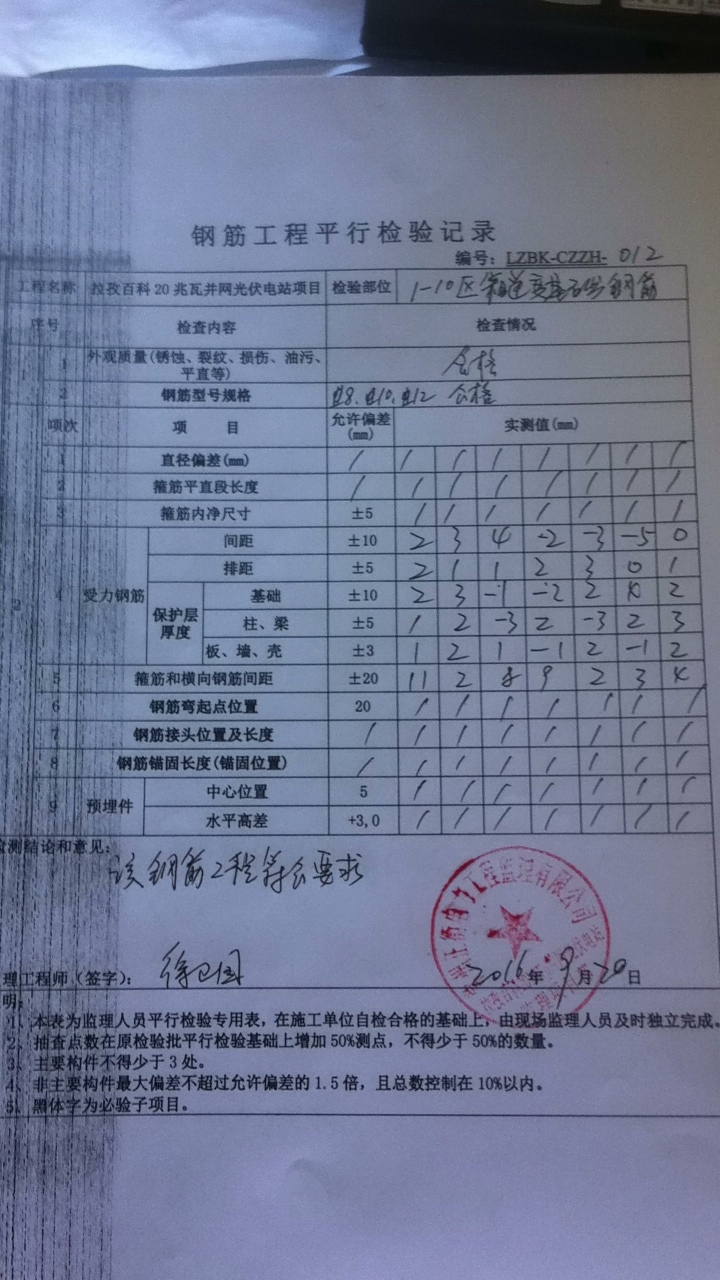 钢筋工程平行检验记录
编号: LZBK-CZZH- 012
工程名称 拉孜百科20兆瓦并网光伏电站项目 检验部位 1-10区箱逆变基础钢筋
序号 检查内容 检查情况
1 1 外观质量(锈蚀、裂纹、损伤、油污、平直等) 合格
2 钢筋型号规格 ⌀8.⌀10.⌀12 合格
项次 项 目 允许偏差(mm) 实测值(mm)
1 直径偏差(mm) / / / / / / / /
2 箍筋平直段长度 / / / / / / / /
3 箍筋内净尺寸 ±5 / / / / / / /
2 4 受力钢筋 间距 ±10 2 3 4 -2 -3 -5 0
排距 ±5 2 1 1 2 3 0 1
保护层厚度 基础 ±10 2 3 -1 -2 2 2
柱、梁 ±5 1 2 -3 2 -3 2 3
板、墙、壳 ±3 1 2 1 -1 2 -1 2
5 箍筋和横向钢筋间距 ±20 11 2 8 9 2 3 4
6 钢筋弯起点位置 20 / / / / / / /
7 钢筋接头位置及长度 / / / / / / / /
8 钢筋锚固长度(锚固位置) / / / / / / / /
9 预埋件 中心位置 5 / / / / / / /
水平高差 +3,0 / / / / / / /
检测结论和意见:
该钢筋工程符合要求
电力工程监理有限公司
理工程师(签字): 徐卫国 2016年9月20日
明:
1、本表为监理人员平行检验专用表,在施工单位自检合格的基础上,由现场监理人员及时独立完成。
2、抽查点数在原检验批平行检验基础上增加50%测点,不得少于50%的数量。
3、主要构件不得少于3处。
4、非主要构件最大偏差不超过允许偏差的1.5倍,且总数控制在10%以内。
5、黑体字为必验子项目。